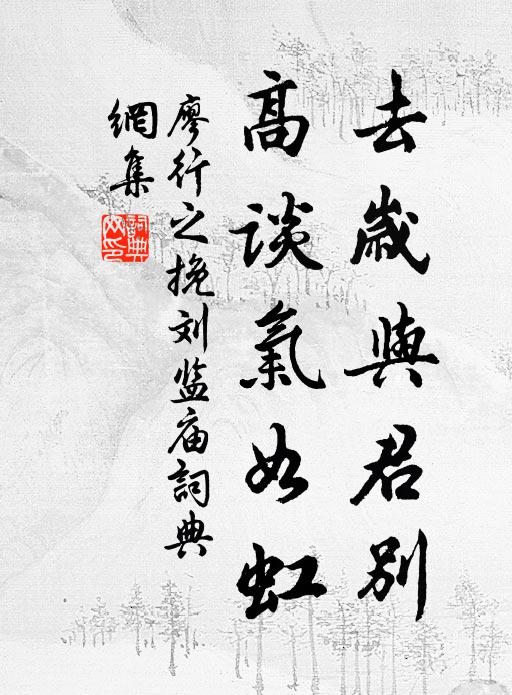 去歲與君別
高談氣如虹
廖行之挽刘监庙詞典
網集
詞典網印